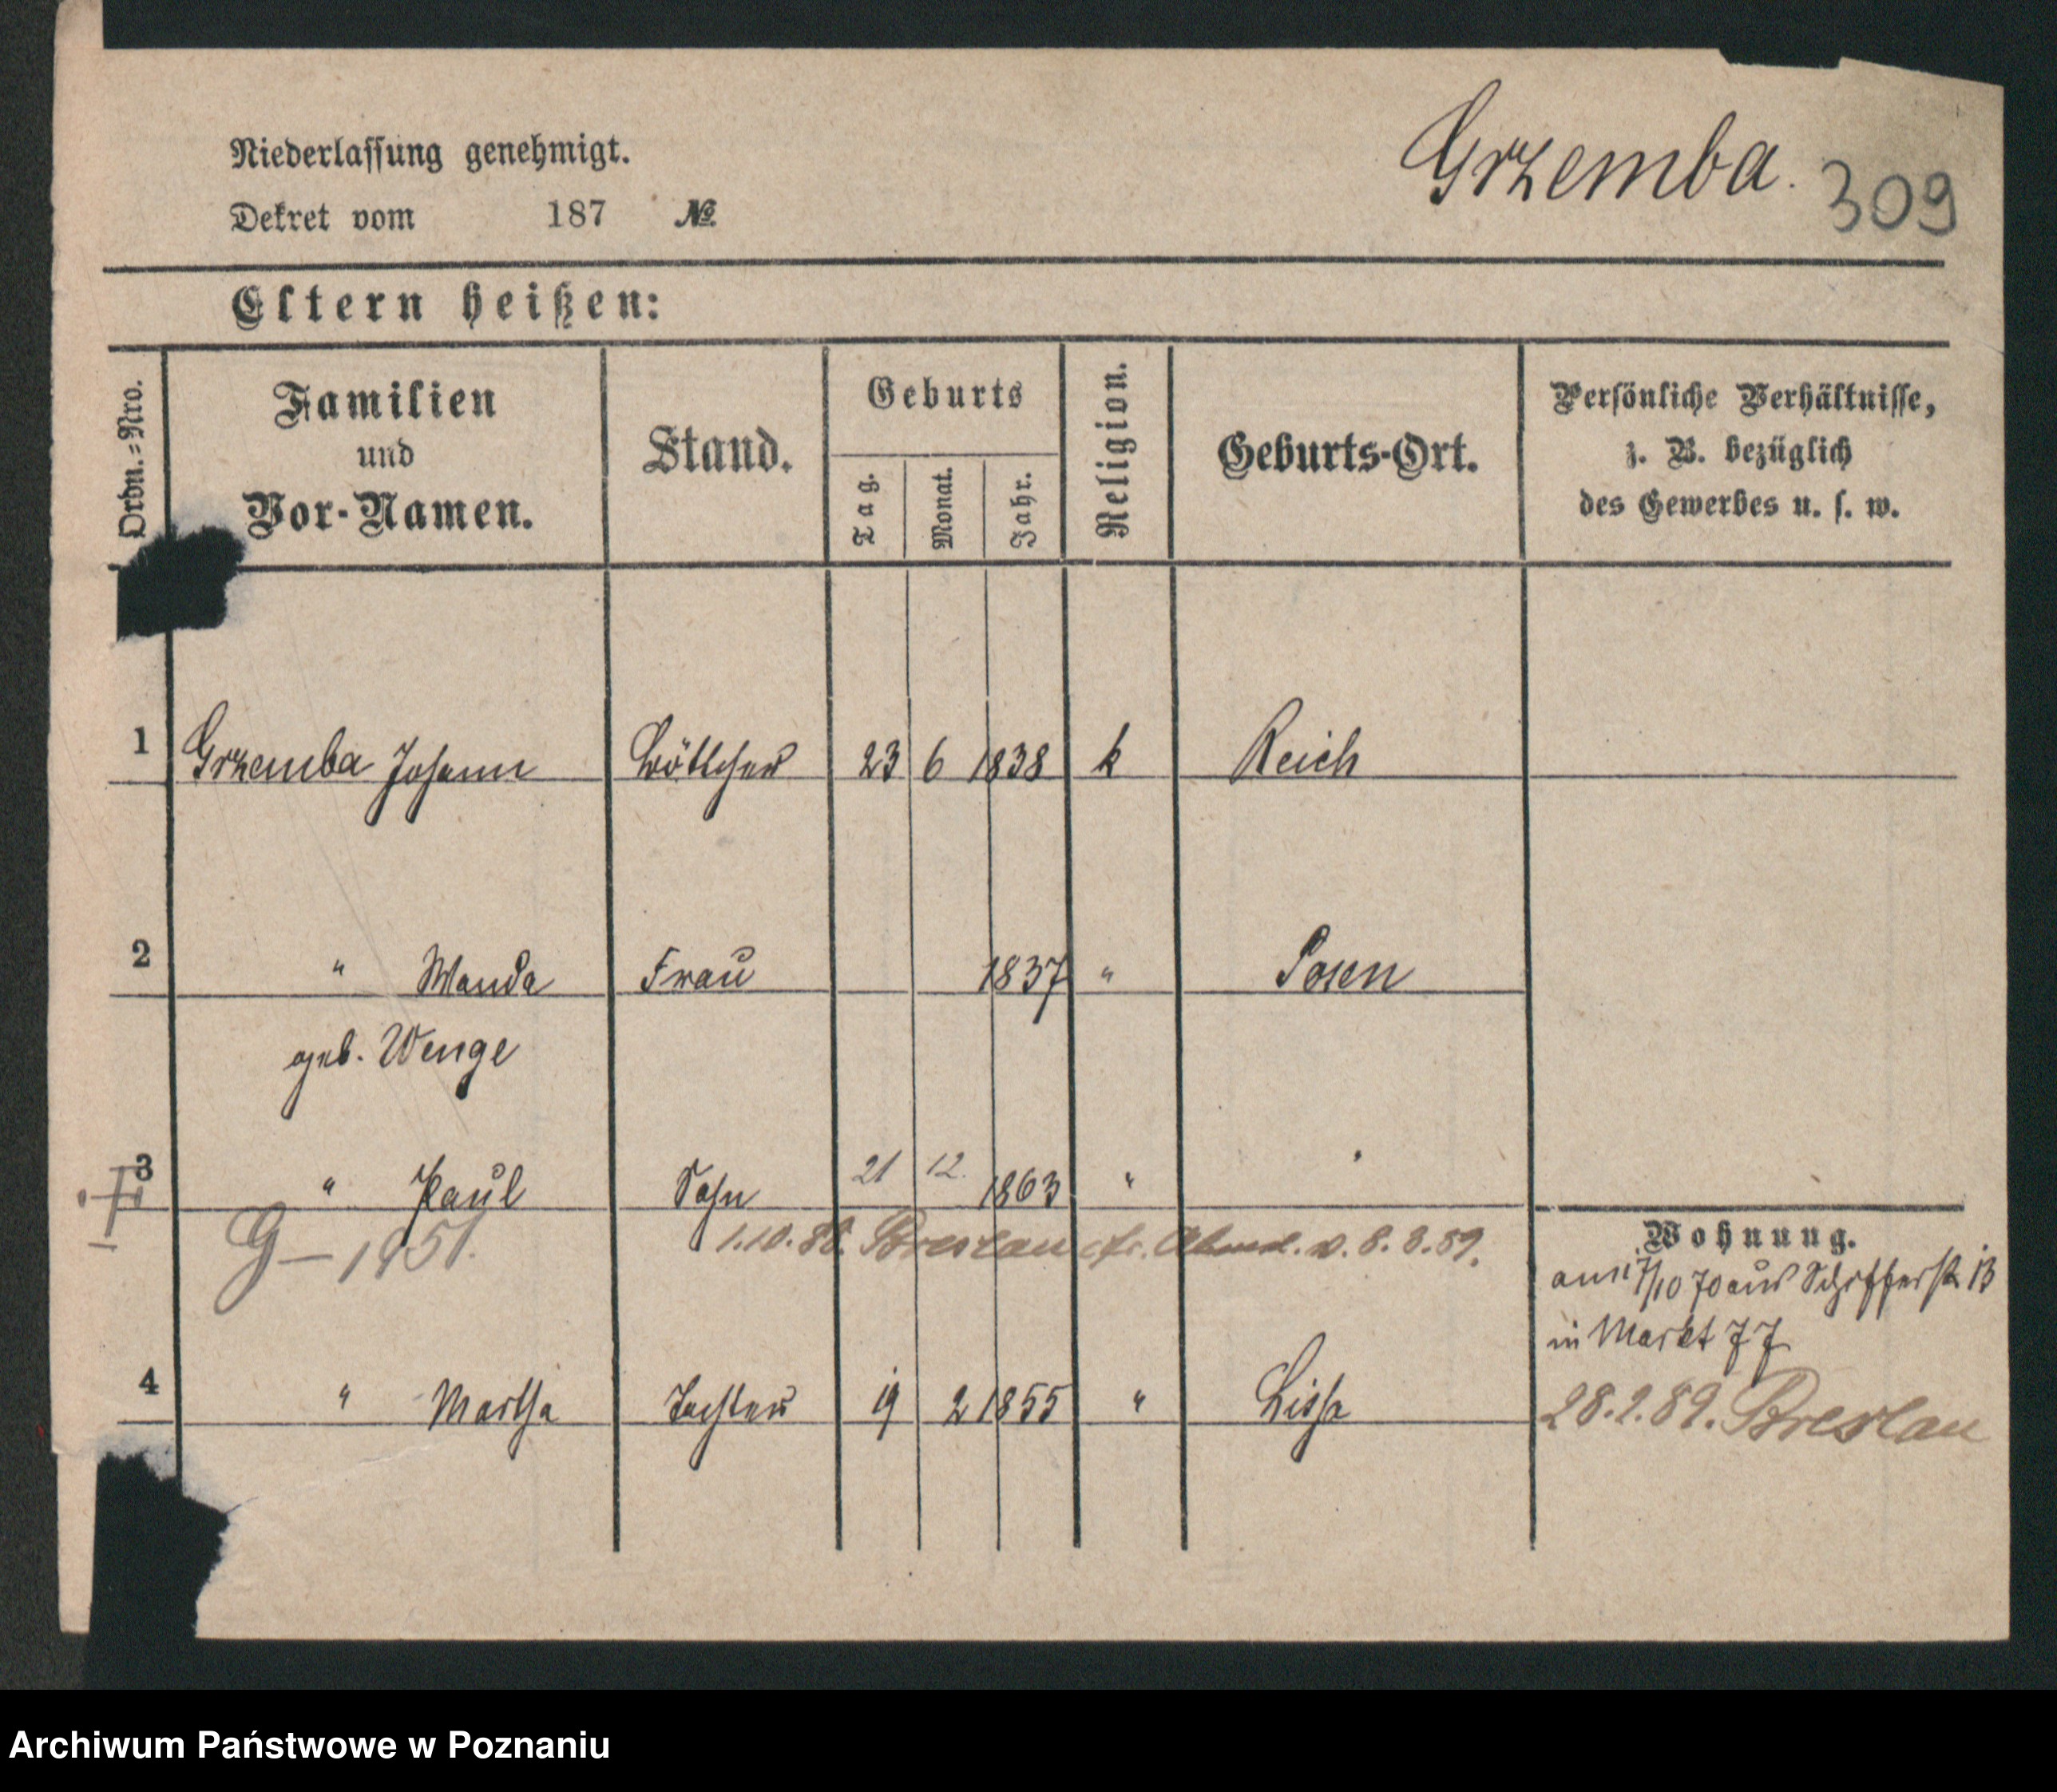 Niederlassung genehmigt.
Grzemba.
309
Dekret vom 187 №
Eltern heißen:
Ordn.=Nro.
Familien
und
Vor-Namen.
Stand.
Geburts
Tag.
Monat.
Jahr.
Religion.
Geburts-Ort.
Persönliche Verhältnisse,
z. B. bezüglich
des Gewerbes u. s. w.
1 Grzemba Johann Böttcher 23 6 1838 k Reich
2 " Wanda Frau 1837 " Posen
geb. Wenge
3 " Paul Sohn 21 12. 1863 "
G – 1851.
1.10.88. Breslau cfr. Abmd. v. 8.3.89.
Wohnung.
7/10 70 aus Schifferst 13
in Markt 77
28.2.89. Breslau
4 " Martha Tochter 19 2 1855 " Lissa
Archiwum Państwowe w Poznaniu